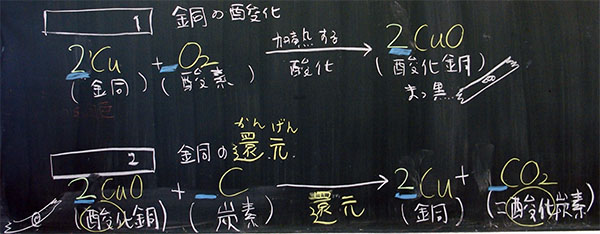 1 銅の酸化
2Cu + O2 加熱する 酸化 → 2CuO
(銅) (酸素) (酸化銅)
まっ黒
かんげん
2 銅の還元
2CuO + C 還元 → 2Cu + CO2
(酸化銅) (炭素) (銅) (二酸化炭素)